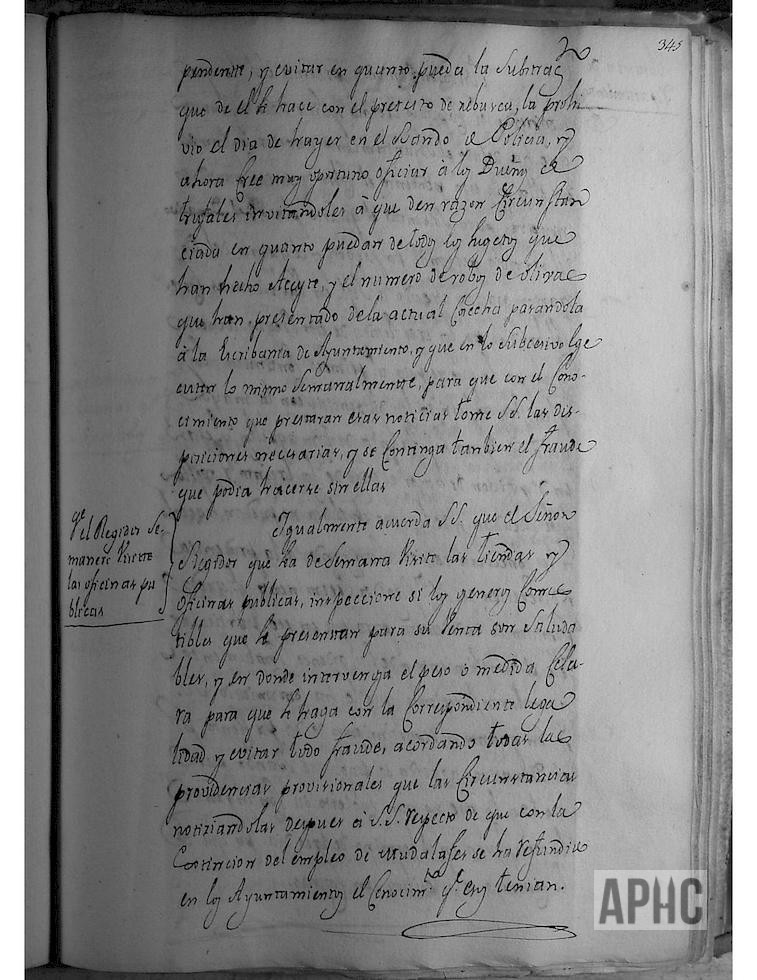 345
pendente, y evitar en quanto pueda la Subtrac
que de el se hace con el pretesto de rebusca, la prohi
vio el dia de hayer en el Bando de Policia, y
ahora cree muy oportuno oficiar à los Dueños de
trujales invitandoles à que den razon Circunstan
ciada en quanto puedan de todos los sugetos que
han hecho Aceyte, y el numero de robos de olivas
que han presentado de la actual Cosecha pasandola
à la Escribania de Ayuntamiento, y que en lo Subcesivo
cuten lo mismo Semanalmente, para que con el Cono-
cimiento que prestaran esas noticias tome S.S. las dis-
posiciones necesarias, y se Contenga tambien el fraude
que podia hacerse sin ellas
Igualmente acuerda S.S. que el Señor
Regidor que ha de Semana Visite las tiendas y
Oficinas publicas, inspeccione si los generos Comes
tibles que se presentan para su Venta son Saluda
bles, y en donde intervenga el peso o medida Cela-
ra para que se haga con la Correspondiente lega
lidad y evitar todo fraude, acordando todas las
providencias provisionales que las Circunstancias
notiziandolas despues a S.S. respecto de que con la
Extincion del empleo de Mudalafes se ha refundido
en los Ayuntamientos el Conocim.to q.e esos tenian.
que el Regidor Se-
manero Visite
las oficinas pu
blicas
APHC